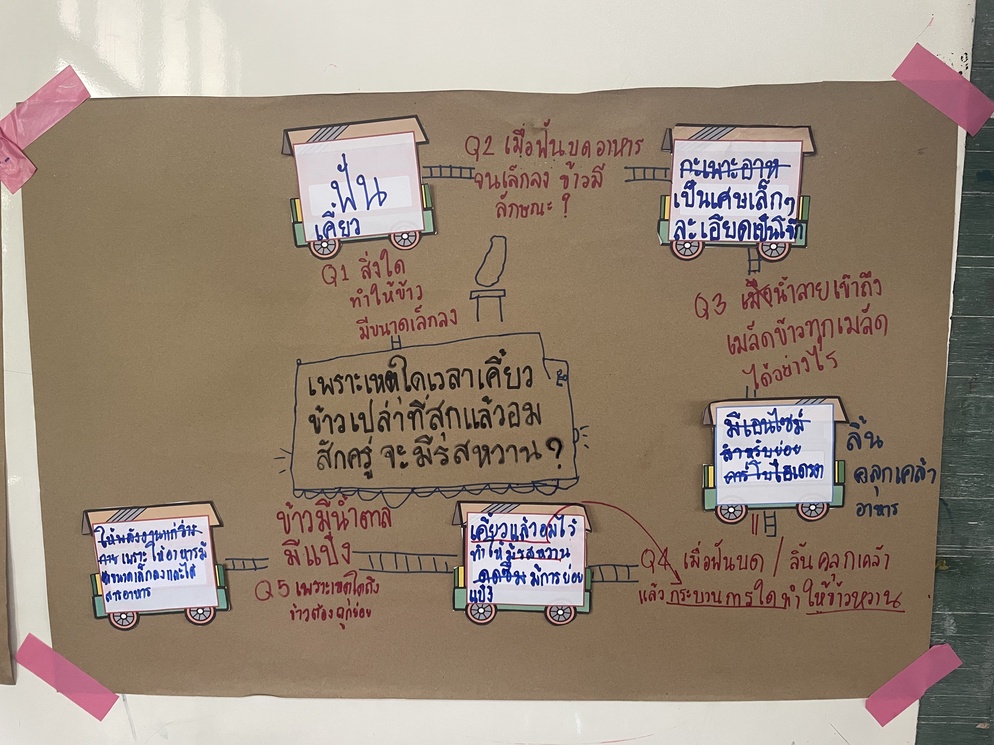 ฟัน
เคี้ยว
Q2 เมื่อฟันบดอาหาร
จนเล็กลง ข้าวมี
ลักษณะ ?
กะเพาะอาห
เป็นเศษเล็กๆ
ละเอียดเป็นโจ๊ก
Q1 สิ่งใด
ทำให้ข้าว
มีขนาดเล็กลง
Q3 เมื่อน้ำลายเข้าถึง
เมล็ดข้าวทุกเมล็ด
ได้อย่างไร
เพราะเหตุใดเวลาเคี้ยว
ข้าวเปล่าที่สุกแล้วอม
สักครู่ จะมีรสหวาน ?
มีเอนไซม์
สำหรับย่อย
คาร์โบไฮเดรต
ลิ้น
คลุกเคล้า
อาหาร
Q4 เมื่อฟันบด / ลิ้นคลุกเคล้า
แล้วกระบวนการใดทำให้ข้าวหวาน
เคี้ยวแล้วอมไว้
ทำให้มีรสหวาน
ดูดซึม มีการย่อย
แป้ง
ข้าวมีน้ำตาล
มีแป้ง
Q5 เพราะเหตุใดถึง
ข้าวต้องถูกย่อย
ให้พลังงานแก่ร่าง
กาย เพราะให้อาหารมี
ขนาดเล็กลงและได้
สารอาหาร